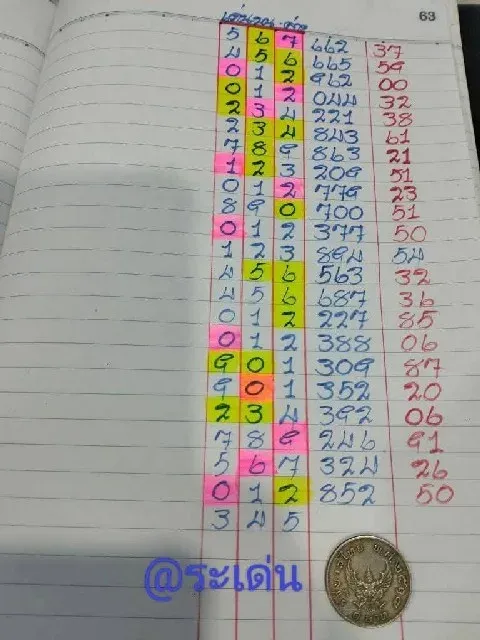 63
เด่น รอง ร่วม
5 6 7 662 37
4 5 6 665 59
0 1 2 962 00
0 1 2 044 32
2 3 4 221 38
2 3 4 843 61
7 8 9 863 21
1 2 3 209 51
0 1 2 779 23
8 9 0 700 51
0 1 2 377 50
1 2 3 894 54
4 5 6 563 32
4 5 6 687 36
0 1 2 227 85
0 1 2 388 06
9 0 1 309 87
9 0 1 352 20
2 3 4 392 06
7 8 9 246 91
5 6 7 324 26
0 1 2 852 50
3 4 5
@ระเด่น